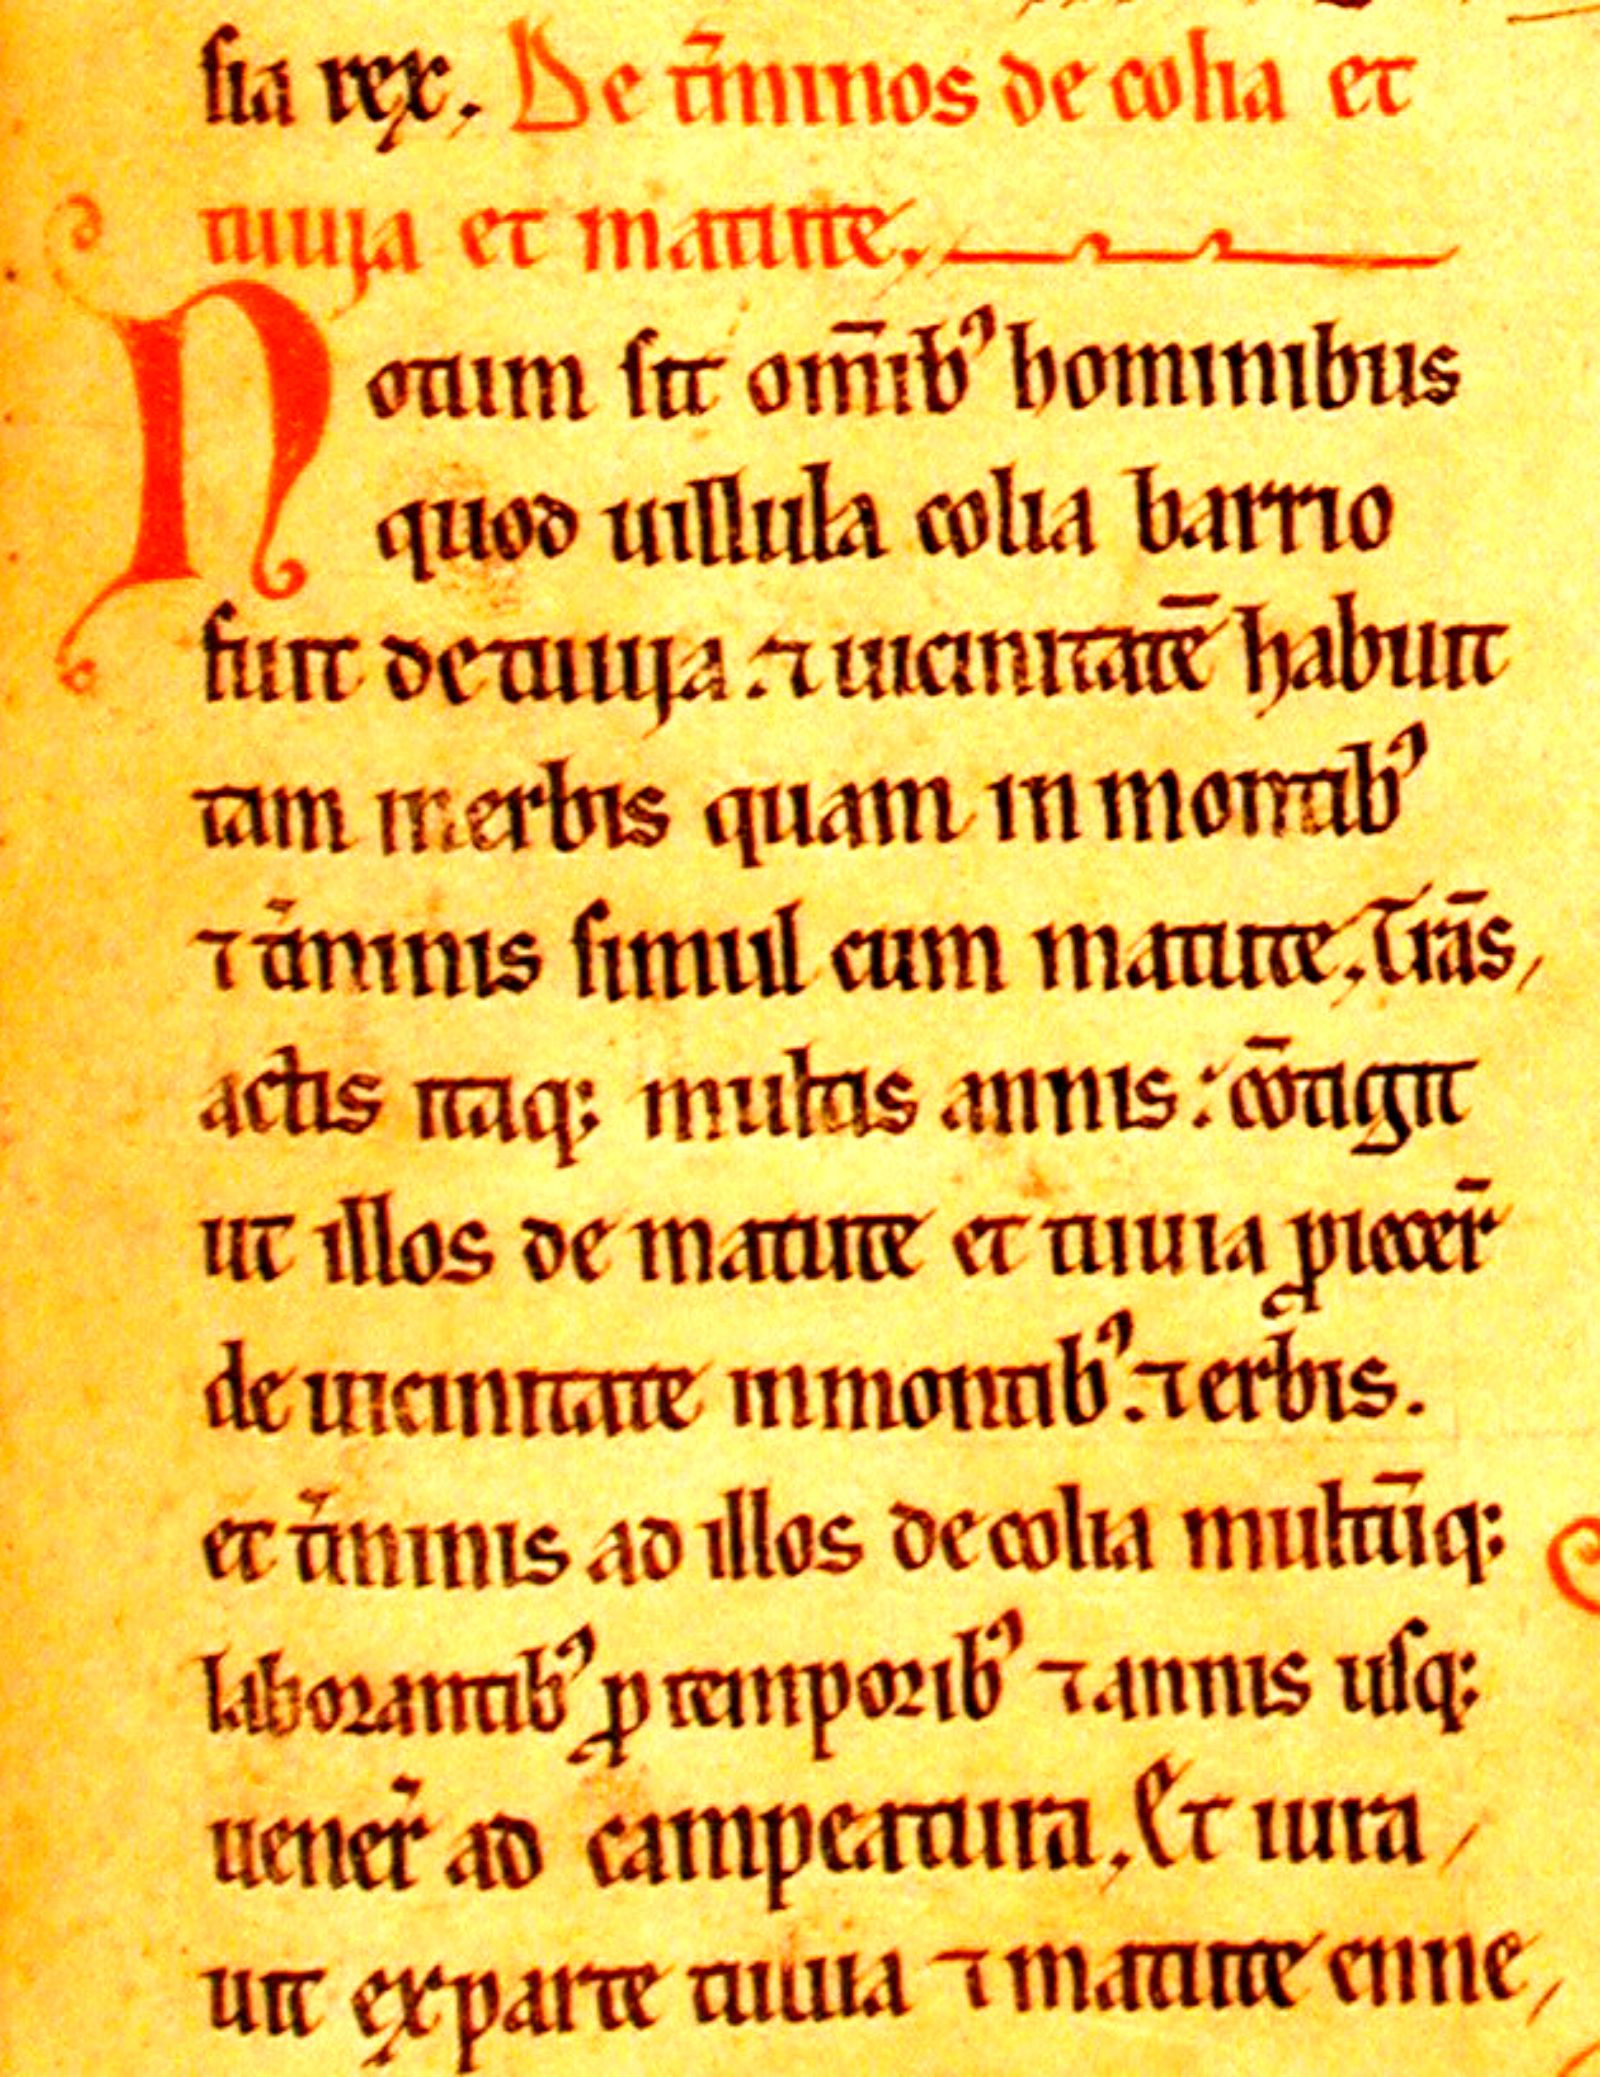 sia rex. De t̄minos de colia et
tiuija et matute.
Notum sit om̄ibꝰ hominibus
quod uillula colia barrio
fuit de tiuija : ⁊ uicinitatē habuit
tam in erbis quam in montibꝰ
⁊ t̄minis simul cum matute. Trās,
actis itaq; multis annis : cōtigit
ut illos de matute et tiuia ꝓiecer̄
de uicinitate in montibꝰ : ⁊ erbis.
et t̄minis ad illos de colia multūq;
laborantibꝰ ꝓ temporibꝰ ⁊ annis usq;
uener̄ ad campeatura. Et iura /
uit ex parte tiuia ⁊ matute enne,